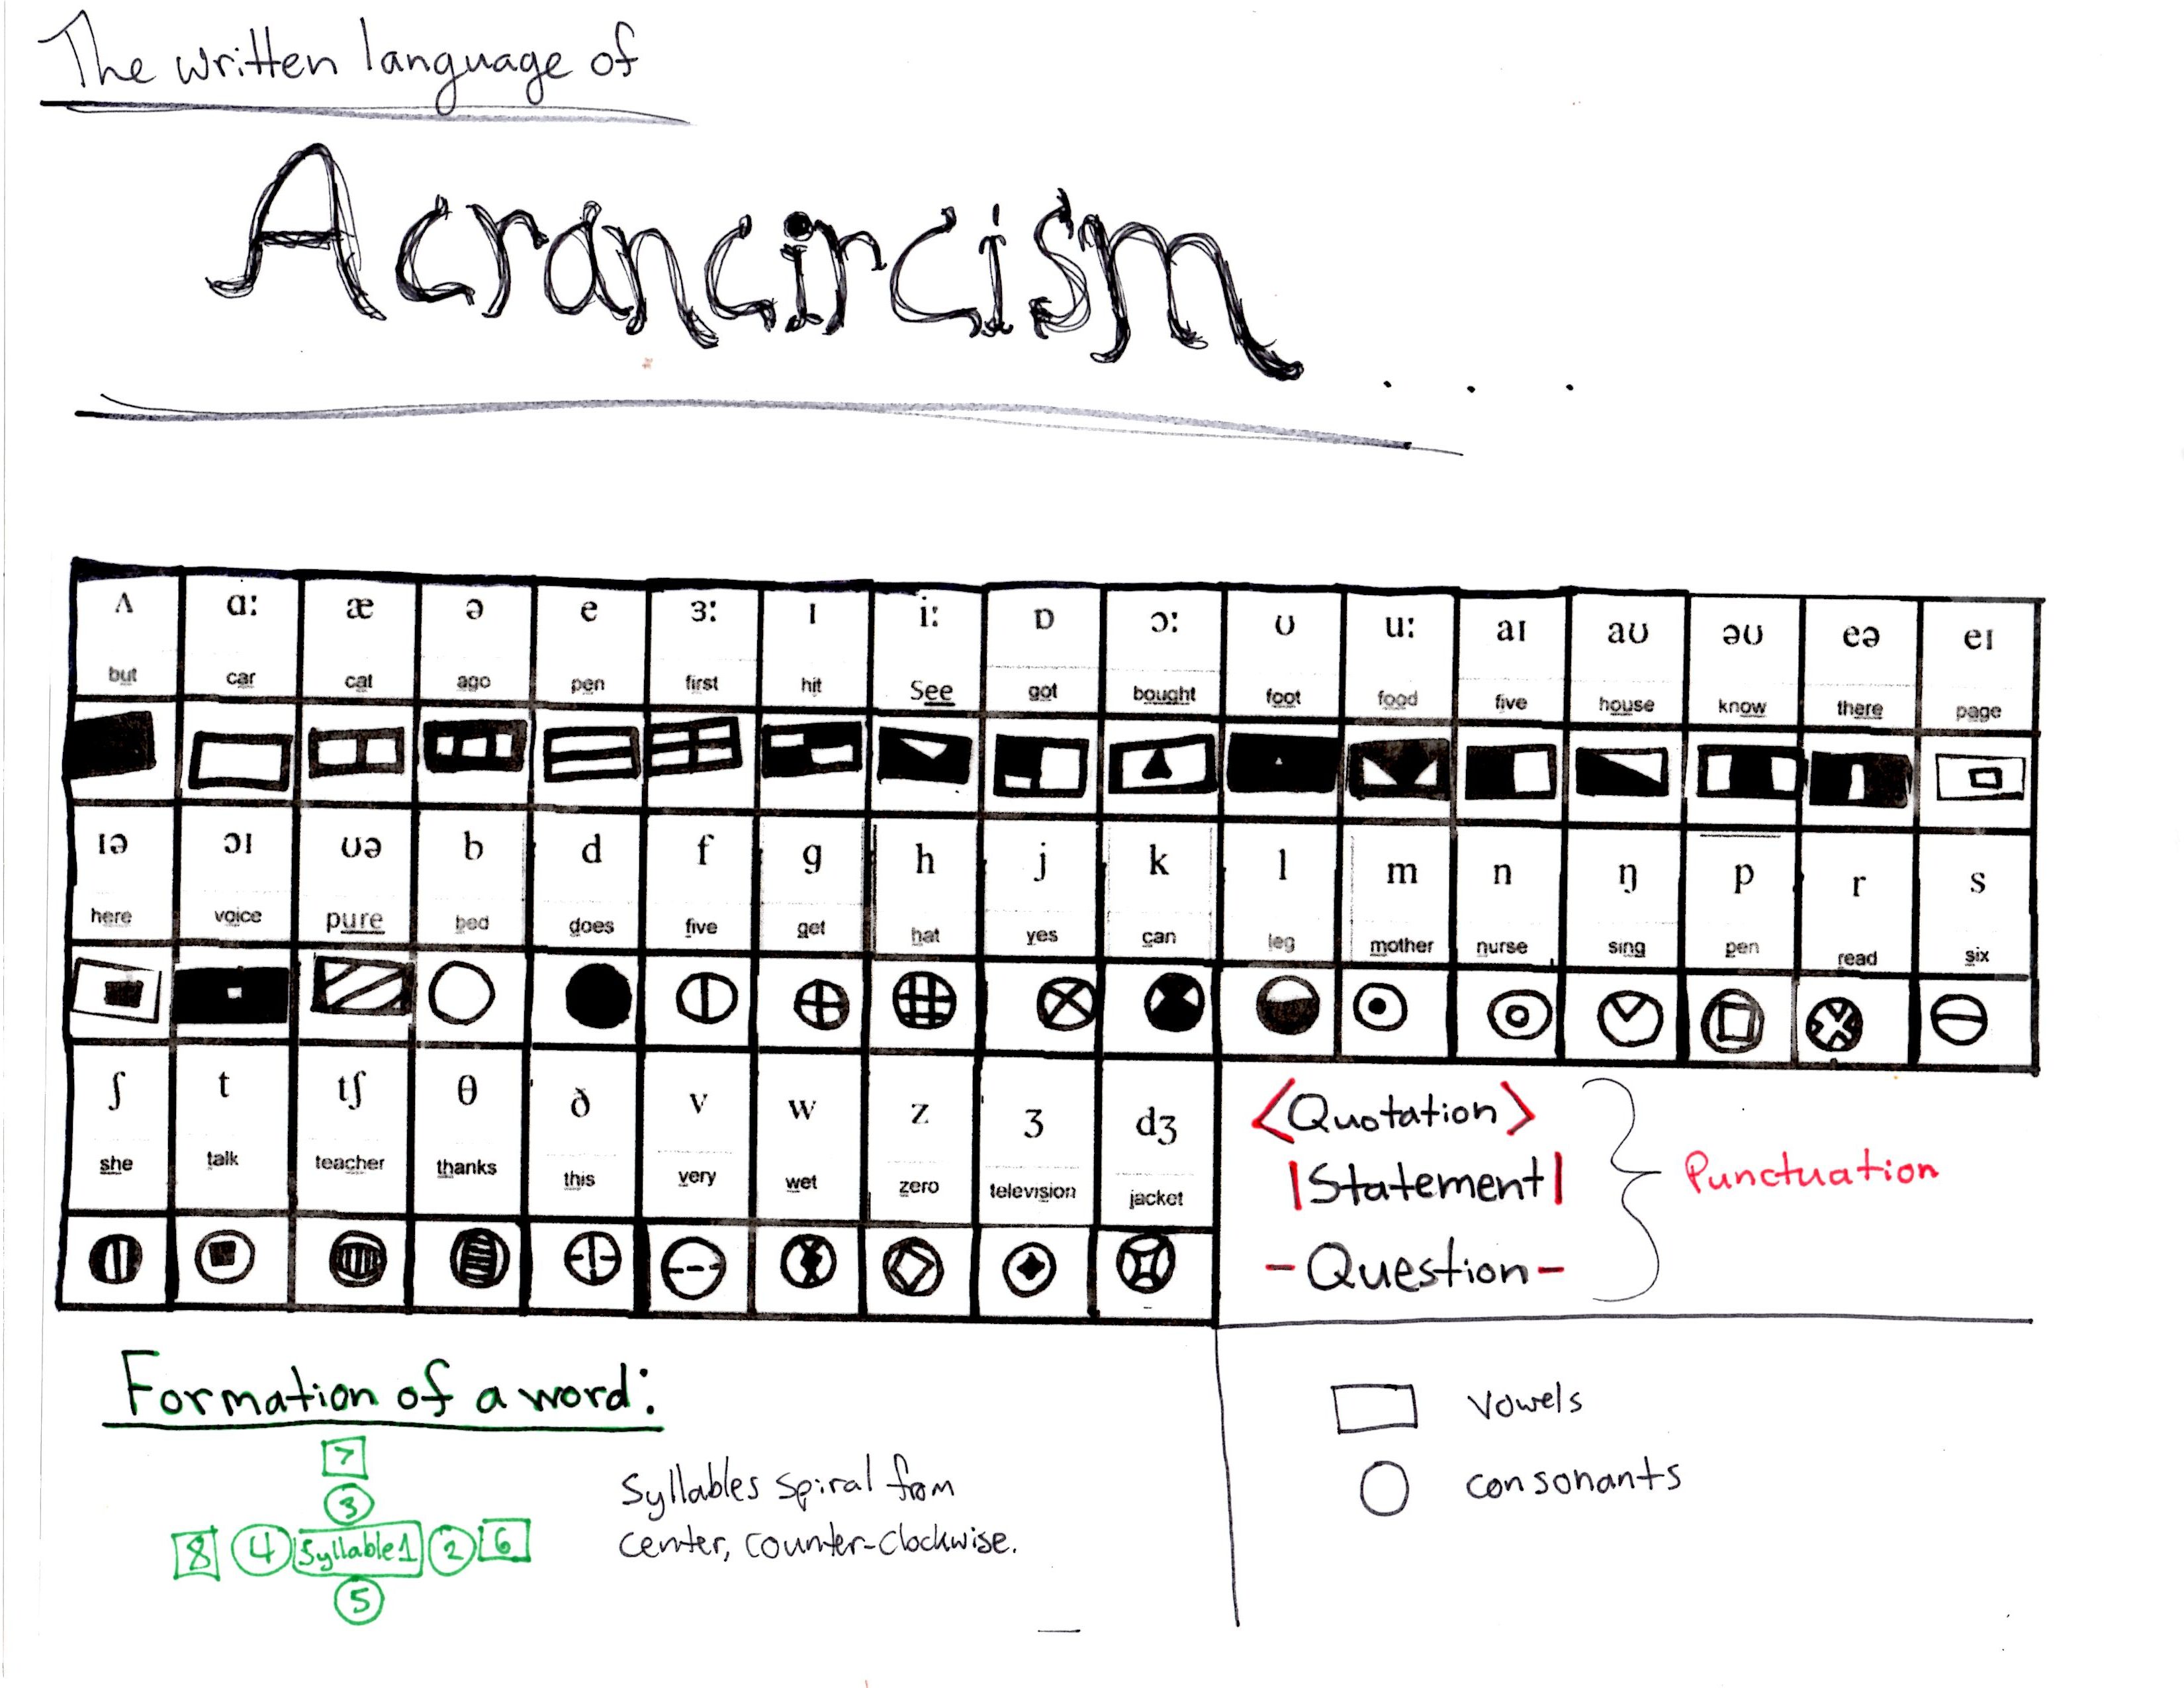 The written language of
Acrancircism...
ʌ ɑ: æ ə e ɜ: ɪ i: ɒ ɔ: ʊ u: aɪ aʊ əʊ eə eɪ
but car cat ago pen first hit See got bought foot food five house know there page
ɪə ɔɪ ʊə b d f g h j k l m n ŋ p r s
here voice pure bed does five get hat yes can leg mother nurse sing pen read six
ʃ t tʃ θ ð v w z ʒ dʒ
she talk teacher thanks this very wet zero television jacket
<Quotation>
|Statement|
-Question-
Punctuation
Formation of a word:
7
3
8 4 Syllable 1 2 6
5
Syllables spiral from
center, counter-clockwise.
vowels
consonants